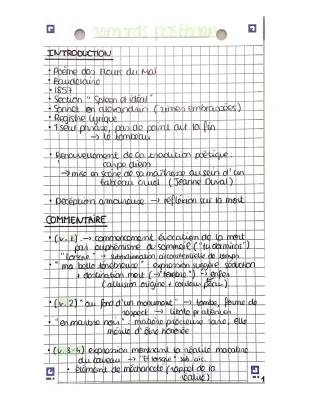 remords posthume
INTRODUCTION
• Poème des Fleurs du Mal
• Baudelaire
• 1857
• Section "Spleen et idéal"
• Sonnet en alexandrin (rimes embrassées)
• Registre lyrique
• 1 seul phrase, pas de point av la fin
→ le tombeau
• Renouvellement de la tradition poétique :
carpe diem
→ mise en scène de sa maîtresse au sein d'un
tableau cruel (Jeanne Duval)
• Déception amoureuse → réflexion sur la mort
COMMENTAIRE
• (v.1) → commencement évocation de la mort
par euphémisme du sommeil ("tu dormiras")
"lorsque" → subordination circonstancielle de temps
• "ma belle ténébreuse" : expression suggère séduction
+ destination mort (→ "ténèbre") → enfer
(allusion origine + couleur peau)
• (v.2) "au fond d'un monument" → tombe, forme de
respect →
• "en marbre noir" : matière précieuse rare, elle
mérite d'être honorée
• (v.3-4) expression montrant la réalité macabre
du caveau → "Et lorsque"
• élément de méchanceté (rappel de la
réalité)
1